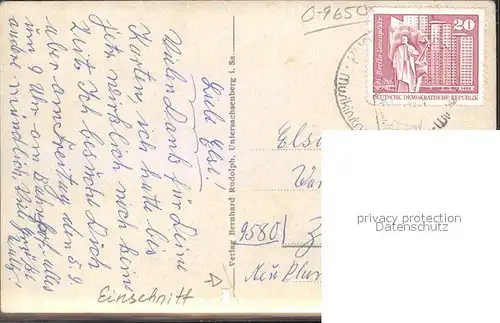 Liebe Else!
Vielen Dank für Deine
Karten ich hatte bis
jetzt wirklich noch keine
Zeit. Ich besuche Dich
aber am Freitag den 5.9.
um 9 Uhr am Bahnhof, alles
andre mündlich. Viel Grüße
Verlag Bernhard Rudolph, Untersachsenberg i. Sa.
0-9650
20
Berlin-Leninplatz
DEUTSCHE DEMOKRATISCHE REPUBLIK
Els
9580
Neu Plan
Einschnitt
privacy protection
Datenschutz